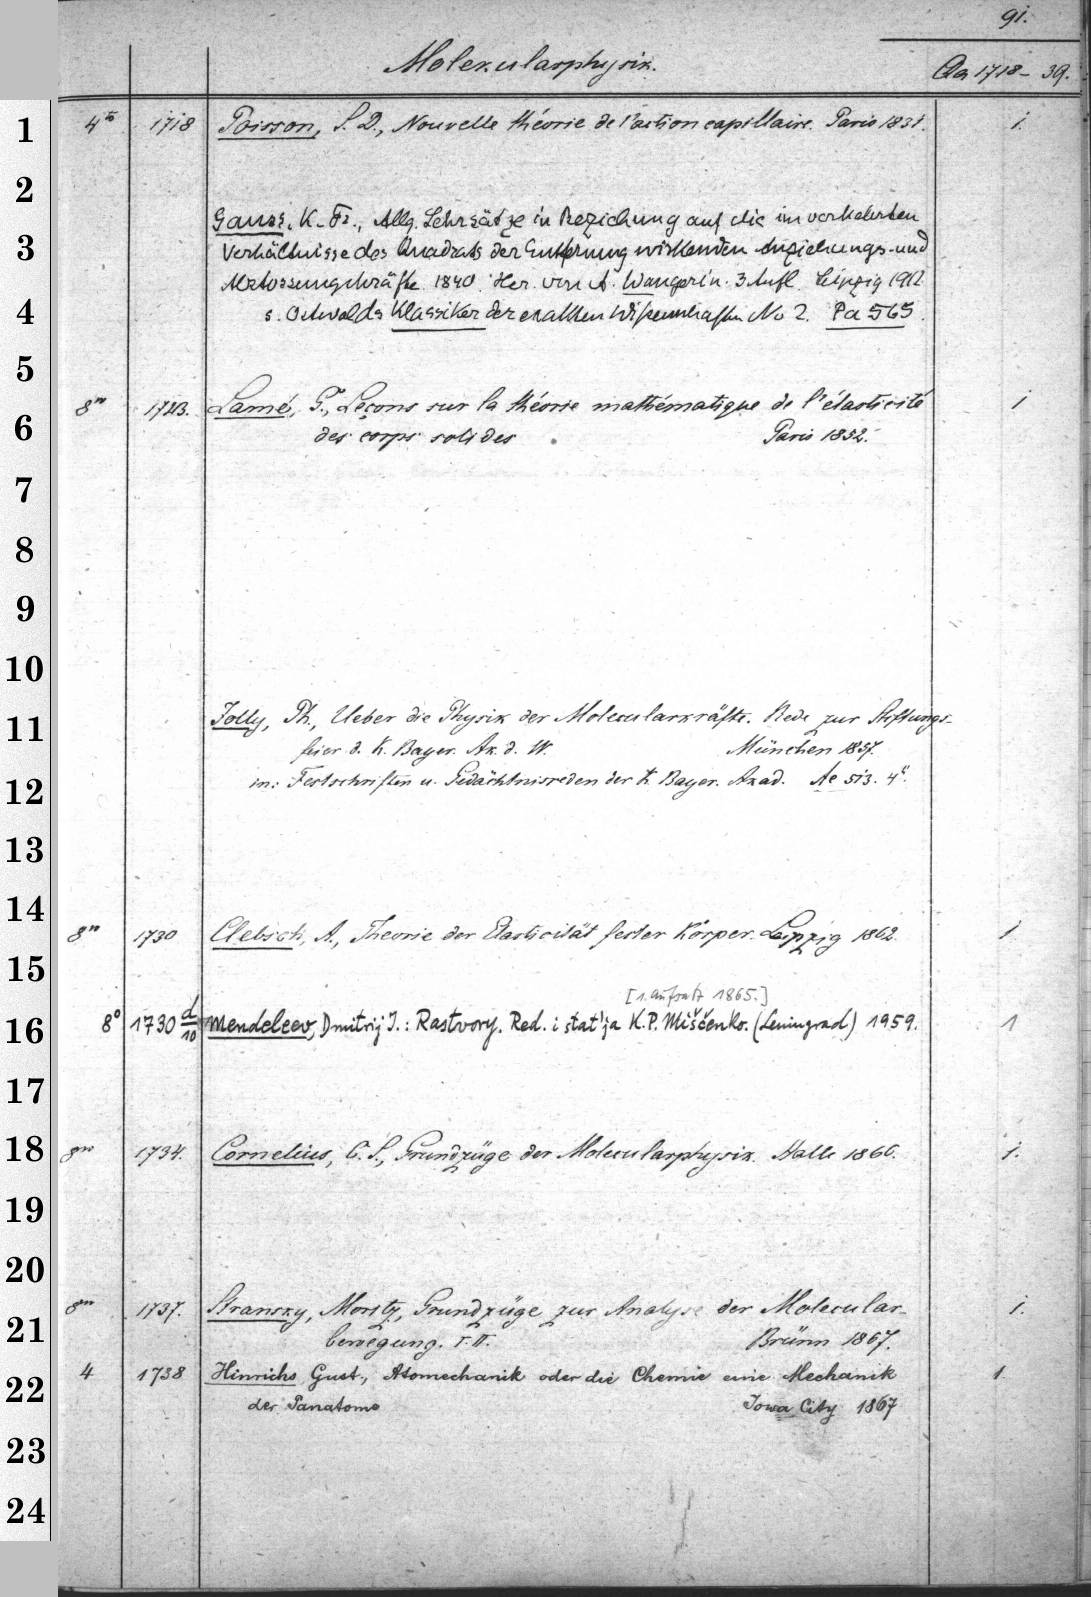 91.
Molecularphysik.
Qa 1718-39.
1 4to 1718 Poisson, S. D., Nouvelle théorie de l'action capillaire. Paris 1831. 1.
2
Gauss, K. Fr., Allg. Lehrsätze in Beziehung auf die im verkehrten
3 Verhältnisse des Quadrats der Entfernung wirkenden Anziehungs- und
Abstossungskräfte 1840. Her. von A. Wangerin. 3 Aufl. Leipzig 1912
4 s. Ostwalds Klassiker der exakten Wissenschaften No 2. Pa 565.
5
8vo 1723. Lamé, G., Leçons sur la théorie mathématique de l'élasticité 1
6 des corps solides Paris 1852.
7
8
9
10
11 Jolly, Ph., Ueber die Physik der Molecularkräfte. Rede zur Stiftungs-
feier d. K. Bayer. Ak. d. W. München 1857.
12 in: Festschriften u. Gedächtnisreden der K. Bayer. Akad. Ae 513. 4o.
13
14 8vo 1730 Clebsch, A., Theorie der Elasticität fester Körper. Leipzig 1862. 1
15
[1. Aufsatz 1865.]
16 8° 1730 d/10 Mendeleev, Dmitrij I.: Rastvory. Red. i stat'ja K. P. Miščenko. (Leningrad) 1959. 1
17
18 8vo 1734. Cornelius, C. S., Grundzüge der Molecularphysik. Halle 1866. 1.
19
20
8vo 1737. Stransky, Moritz, Grundzüge zur Analyse der Molecular- 1.
21 bewegung. I. II. Brünn 1867.
22 4 1738 Hinrichs Gust., Atomechanik oder die Chemie eine Mechanik 1
der Panatome Iowa City 1867
23
24